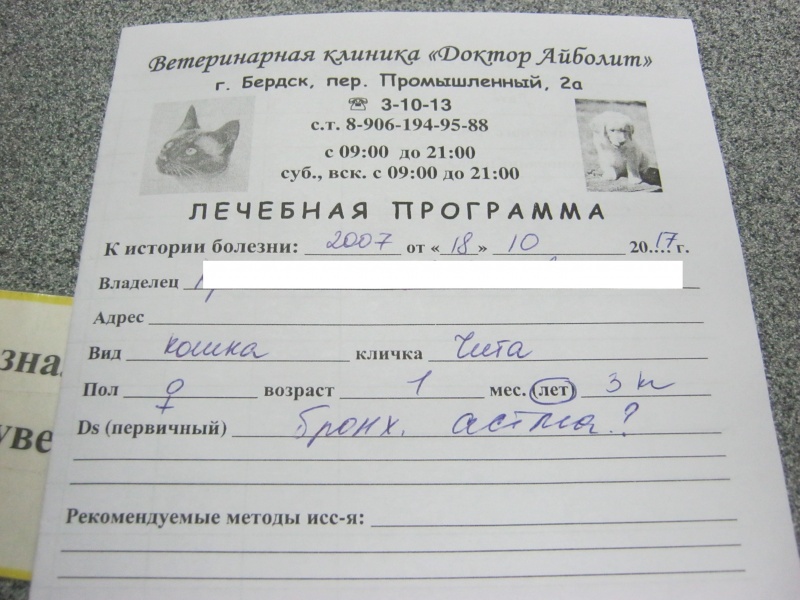 Ветеринарная клиника «Доктор Айболит»
г. Бердск, пер. Промышленный, 2а
☏ 3-10-13
с.т. 8-906-194-95-88
с 09:00 до 21:00
суб., вск. с 09:00 до 21:00
ЛЕЧЕБНАЯ ПРОГРАММА
К истории болезни: 2007 от «18» 10 2017 г.
Владелец
Адрес
Вид кошка кличка Чита
Пол ♀ возраст 1 мес. (лет) 3 кг
Ds (первичный) бронх. астма?
Рекомендуемые методы исс-я: